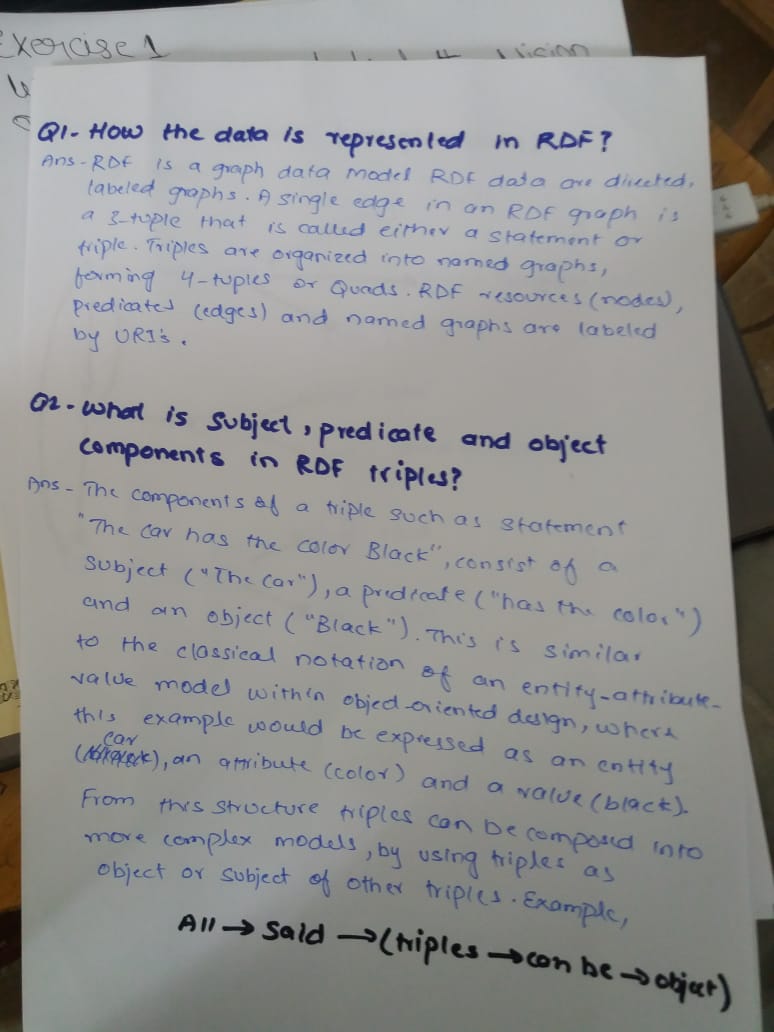 Exercise 1
Q1- How the data is represented in RDF?
Ans - RDF is a graph data model RDF data are directed,
labeled graphs. A single edge in an RDF graph is
a 3-tuple that is called either a statement or
triple. Triples are organized into named graphs,
forming 4-tuples or Quads. RDF resources (nodes),
predicates (edges) and named graphs are labeled
by URI's.
Q2- What is subject, predicate and object
components in RDF triples?
Ans - The components of a triple such as statement
"The car has the color Black", consist of a
subject ("The car"), a predicate ("has the color")
and an object ("Black"). This is similar
to the classical notation of an entity-attribute-
value model within object-oriented design, where
this example would be expressed as an entity
(car), an attribute (color) and a value (black).
From this structure triples can be composed into
more complex models, by using triples as
object or subject of other triples. Example,
All → said → (triples → can be → object)